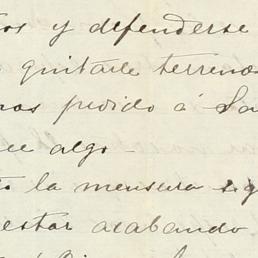 os y defenderse
quitarle terreno
mos pedido á Sa
ue algo
to la mensura s. g
estar acabando